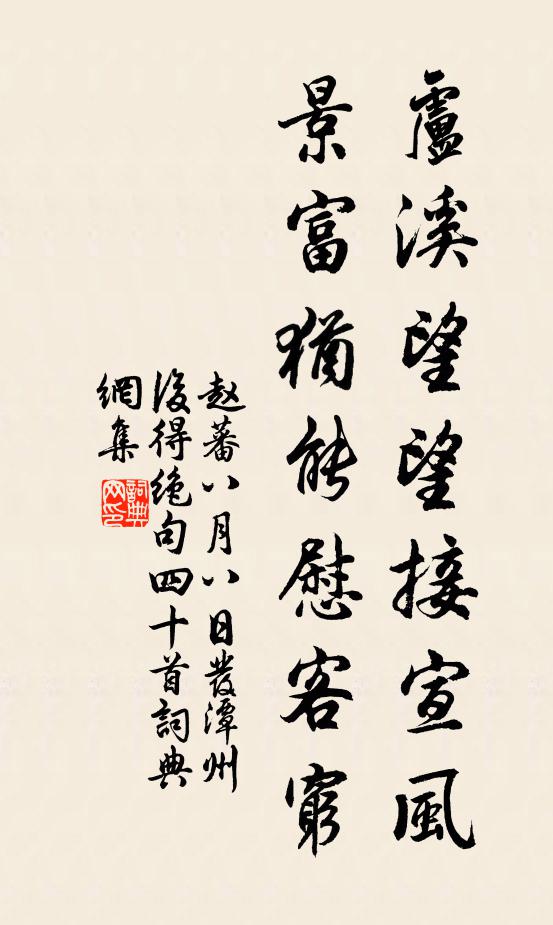 盧溪望望接宣風
景富猶能慰客窮
赵蕃八月八日發潭州
後得絶句四十首詞典
網集
詞典网印